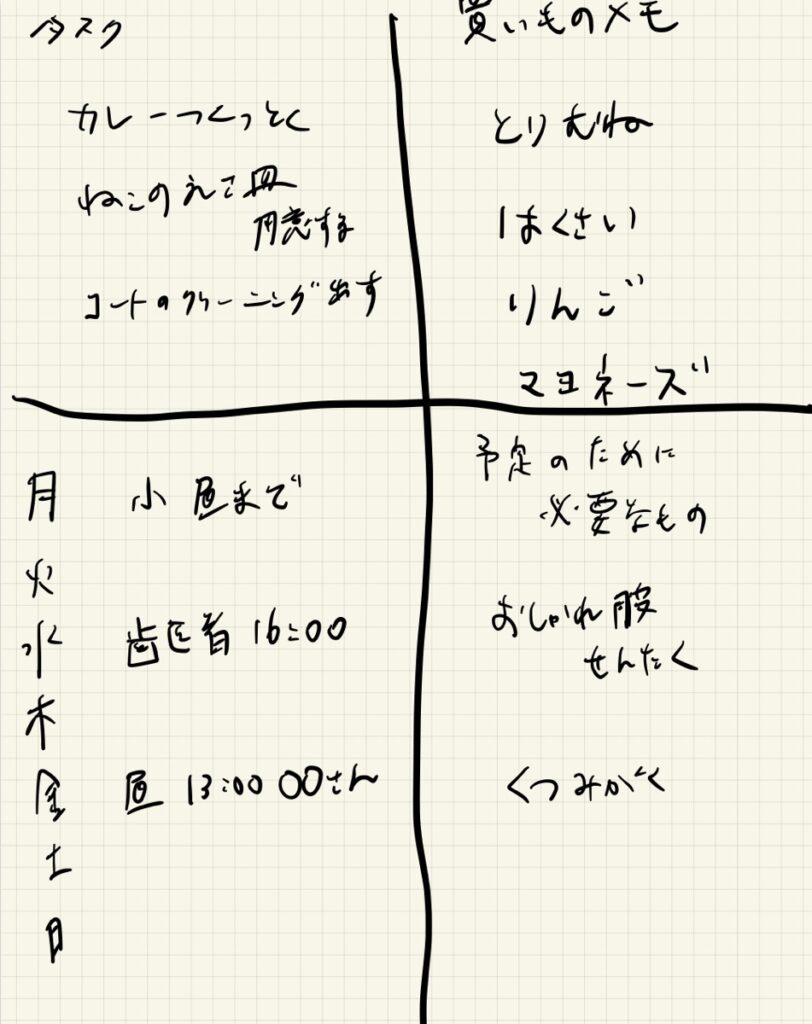 タスク
カレーつくっとく
ねこのえさ皿
用意する
コートのクリーニング出す
買いものメモ
とりむね
はくさい
りんご
マヨネーズ
月 小 昼まで
火
水 歯医者 16:00
木
金 昼 13:00 〇〇さん
土
日
予定のために
必要なもの
おしゃれ服
せんたく
くつみがく